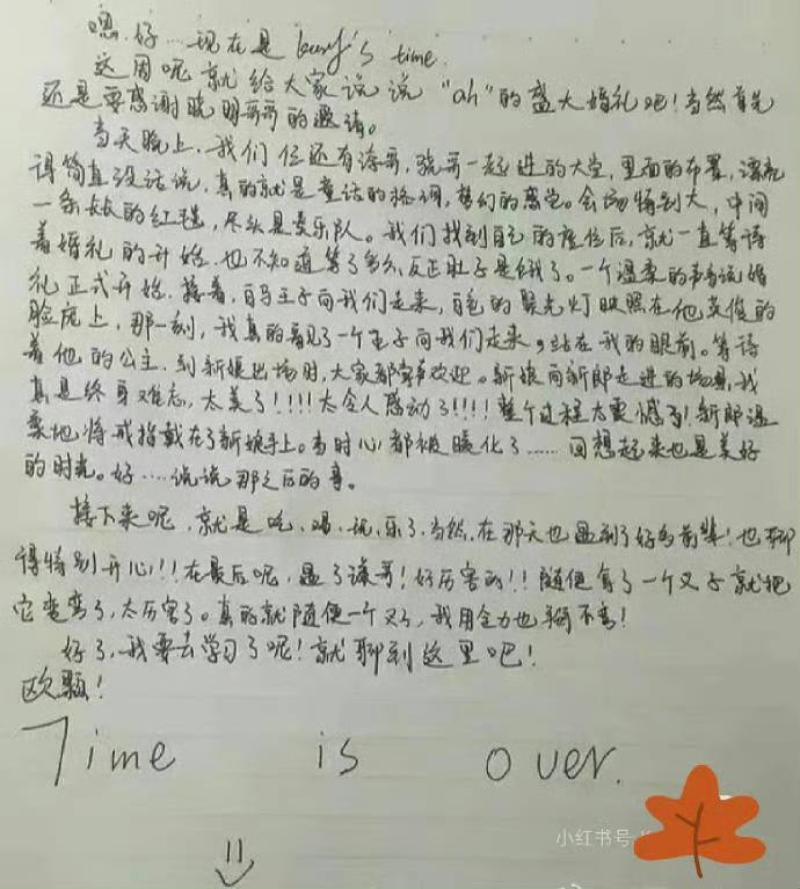 嗯.好....现在是 karry's time.
这周呢 就给大家说说 "ah"的盛大婚礼吧!当然首先
还是要感谢晓明哥哥的邀请。
当天晚上.我们仨还有涛哥,骁哥一起进的大堂,里面的布置,漂亮
得简直没话说,真的就是童话的格调,梦幻的感觉。会场特别大,中间
一条长长的红毯,尽头是交乐队。我们找到自己的座位后,就一直等待
着婚礼的开始.也不知道等了多久,反正肚子是饿了。一个温柔的声音说婚
礼正式开始.接着,白马王子向我们走来,白色的聚光灯映照在他英俊的
脸庞上,那一刻,我真的看见了一个王子向我们走来,站在我的眼前。等待
着他的公主.到新娘出场时,大家都掌声欢迎。新娘向新郎走进的场景,我
真是终身难忘,太美了!!!!太令人感动了!!!!整个过程太震憾了!新郎温
柔地将戒指戴在了新娘手上。当时心都被暖化了......回想起来也是美好
的时光。好....说说那之后的事。
接下来呢,就是吃、喝、玩、乐了.当然.在那天也遇到了好多前辈!也聊
得特别开心!!在最后呢,遇了谦哥!好厉害的!!随便拿了一个叉子就把
它变弯了,太厉害了。真的就随便一个叉子,我用全力也掰不弯!
好了,我要去学习了呢!就聊到这里吧!
欧颗!
Time is over.
小红书号